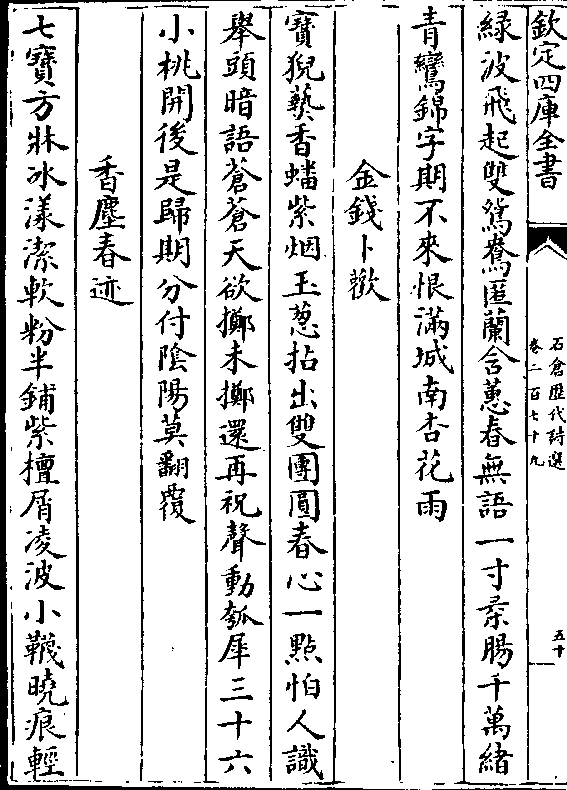 欽定四庫全書
石倉歷代詩選
卷二百七十九
五十
緑波飛起雙鴛鴦匳蘭含蕙春無語一寸柔腸千萬緒
青鸞錦字期不來恨滿城南杏花雨
金錢卜歡
寶猊爇香蟠紫烟玉葱拈出雙團圓春心一點怕人識
舉頭暗語蒼蒼天欲擲未擲還再祝聲動瓠犀三十六
小桃開後是歸期分付陰陽莫翻覆
香塵春迹
七寶方牀冰漾潔軟粉半鋪紫檀屑凌波小韈曉痕輕